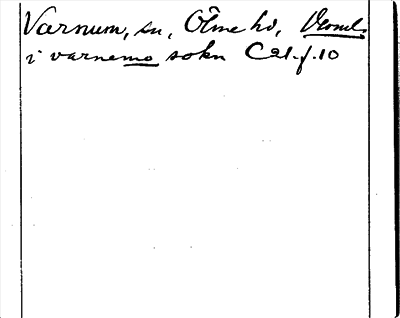 Varnum, sn, Ölme hd, Vrml.
i varnemo sokn C21.f.10